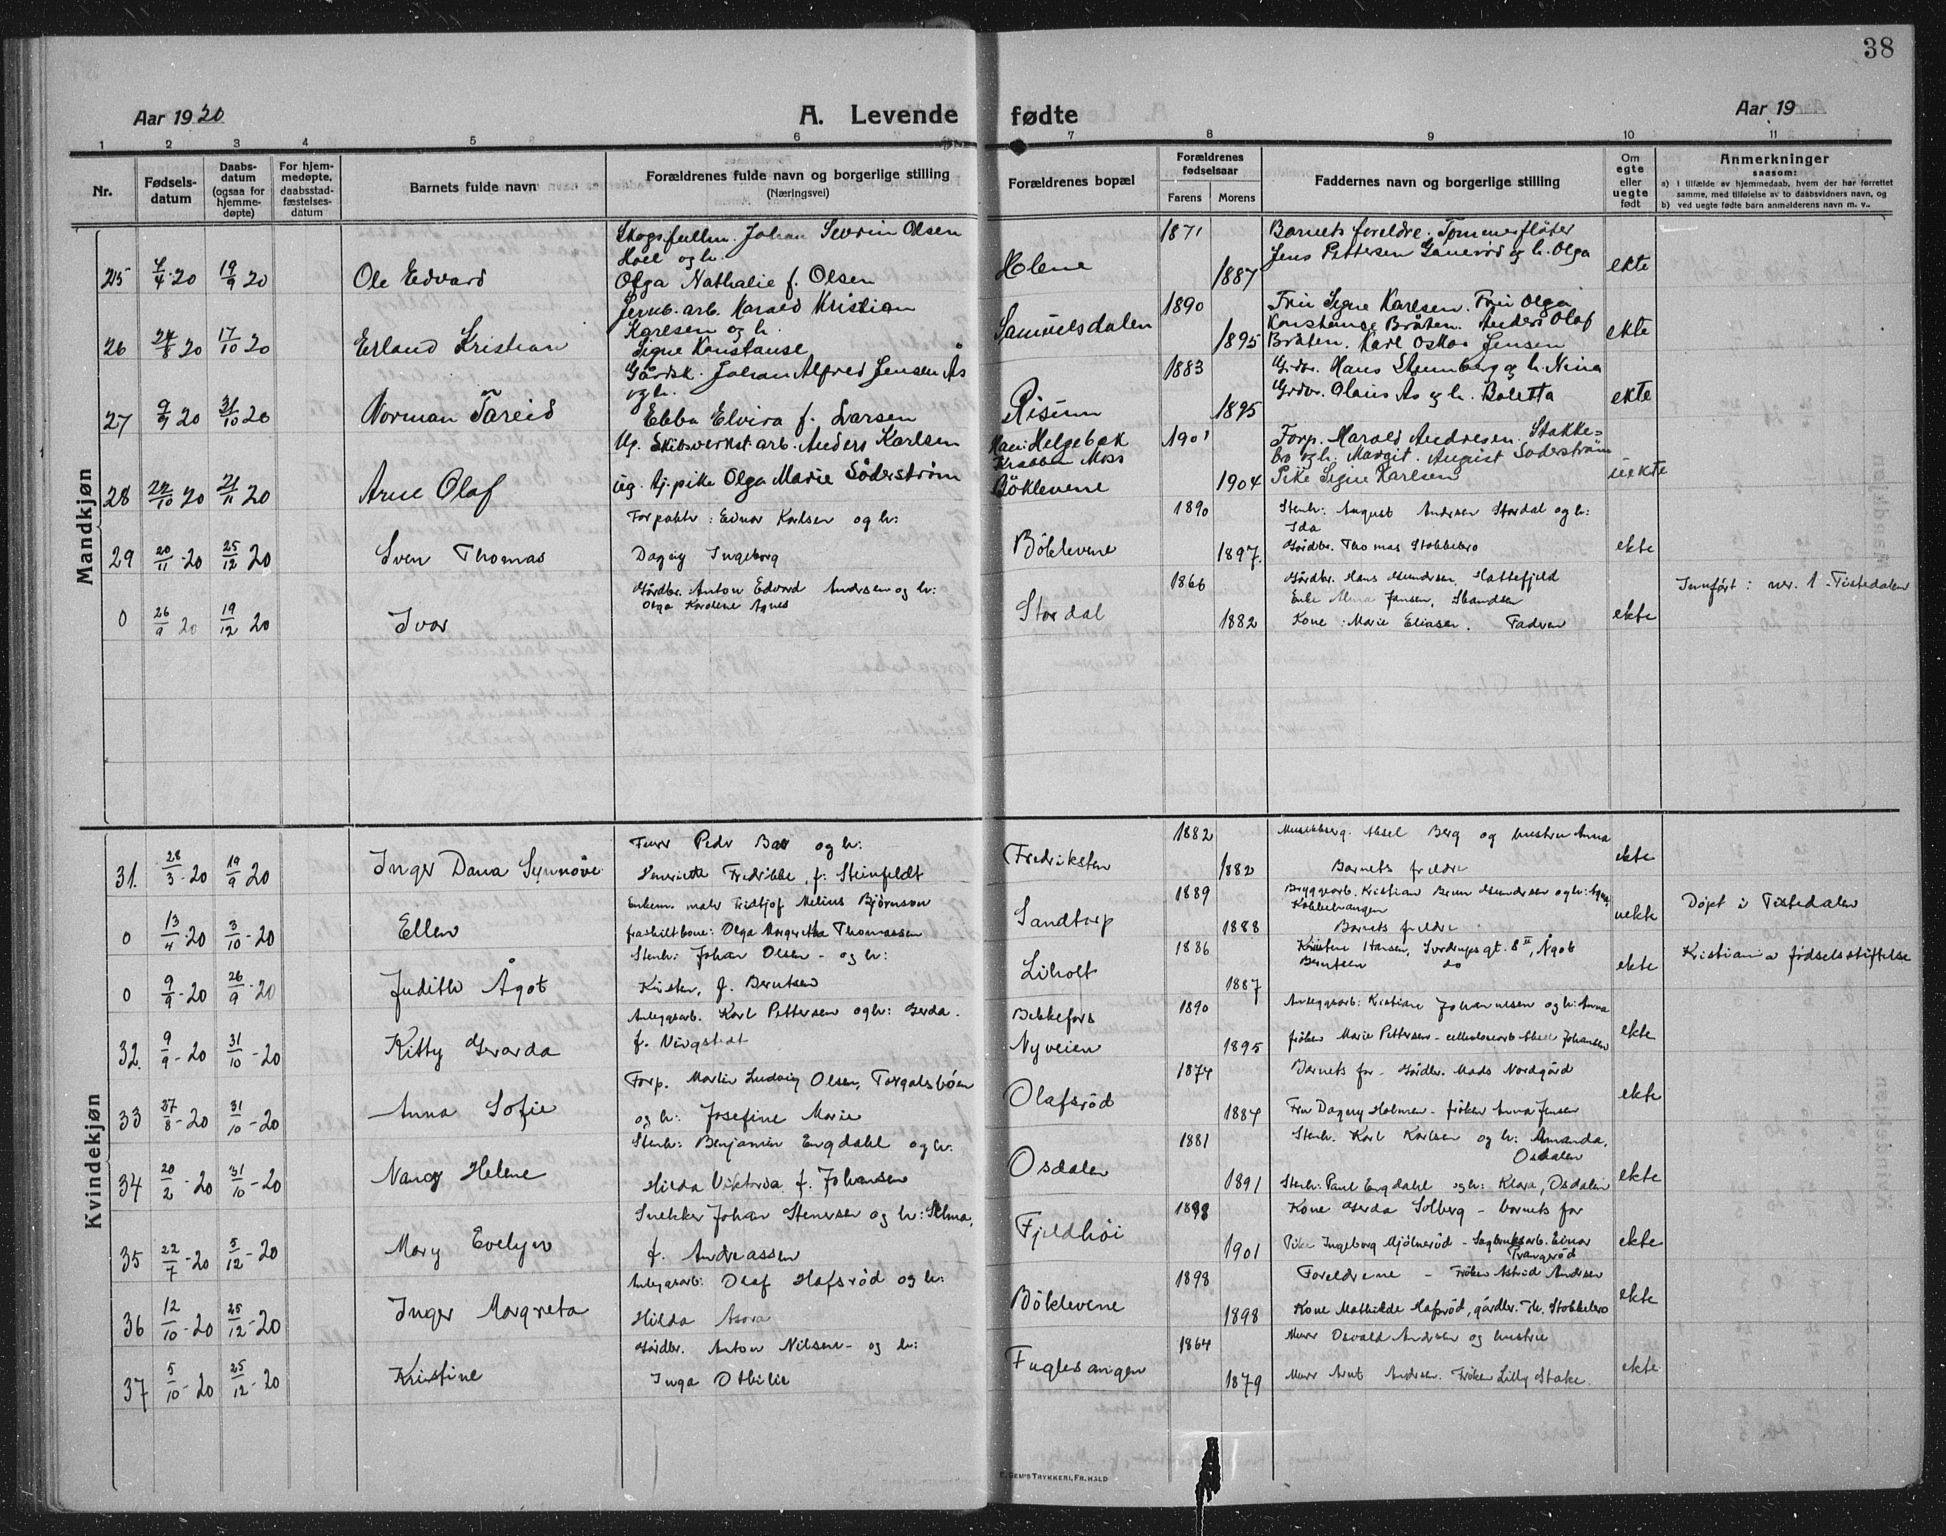 38
Aar 1920 A. Levende fødte Aar 19
1 2 3 4 5 6 7 8 9 10 11
Nr. Fødsels-datum Daabs-datum (ogsaa for hjemme-døpte) For hjem-medøpte, daabsstad-fæstelses-datum Barnets fulde navn Forældrenes fulde navn og borgerlige stilling (Næringsvei) Forældrenes bopæl Forældrenes fødselsaar Farens Morens Faddernes navn og borgerlige stilling Om egte eller uegte født Anmerkninger saasom:
a) i tilfælde av hjemmedaab, hvem der har forrettet samme, med tilføielse av to daabsvidners navn, og
b) ved uegte fødte barn anmelderens navn m. v.
Mandkjøn
Johan Severin Olsen 1871 Barnets foreldre. Tømmerfløter
Hoel og h. Jens Pettersen Ganerød og h. Olga
25 4/4 20 19/9 20 Ole Edvard Olga Nathalie f. Olsen Holene 1887 ekte
Jernb. arb. Harald Kristian 1890 Fru Signe Karlsen. Fru Olga
Karlsen og h. Samuelsdalen Konstanse Bråten. Anders Olaf
26 24/8 20 17/10 20 Erland Kristian Signe Konstanse 1895 Bråten. Karl Oskar Jensen ekte
Gårdsk. Johan Alfred Jensen Ås 1883 Grdbr. Hans Strømberg og h. Nina
og h. Grdbr. Olaus As og h. Boletta
27 9/9 20 31/10 20 Norman Tareid Ebba Elvira f. Larsen Risum 1895 ekte
Ug. Skibsverkst. arb. Anders Karlsen Helgebak 1901 Forp. Harald Andresen. Stokke-
Krabben Moss bo og h. Margit. August Søderstrøm
28 20 21/11 20 Arne Olaf ug. tj. pike Olga Marie Søderstrøm Böklevene 1904 Pike Signe Karlsen uekte
Forpakter: Einar Karlsen og h: 1890 Stenh: August Andersen Stordal og h:
Ida
29 20/11-20 25/12 20 Sven Thomas Dagny Ingeborg Böklevene 1897. Gårdbr. Thomas Stokkebro ekte
Gårdbr. Anton Edvard Andersen og h: 1866 Gårdbr. Hans Gundersen, Hattefjeld Innført: nr. 1 Tistedalen
Olga Karoline Agnes Enke Jensen,
0 26/9 20 19/12 20 Ivar Stordal 1882 Kone: Marie Eliasen. Fadren ekte
Kvindekjøn
Peder og h: 1882 Aksel Berg og hustru Anna
31. 28/3-20 19/9 20 Inger Dana Synnøve Henriette Fredrikke, f: Steinfeldt Fredriksten 1882 Barnets freldre ekte
Enkem. maler Fridtjof Melius Bjørnson 1889 Bryggearb. Kristian Gundersen og h: Agnes,
Kobbelvangen
0 13/4-20 3/10-20 Ellen fraskiltkone: Olga Margretha Thomassen Sandtorp 1888 Barnets freldre uekte Døpt i Tistedalen
Stenh: Johan Olsen - og h: 1886 Kristine Hansen, Tordenskj. gt. 8 II, Ågot Kristiania fødselsstiftelse
Berntsen do
0 9/9-20 26/9-20 Judith Ågot Kristen, f. Berntsen Liholt 1887 ekte
Anleggsarb. Karl Pettersen og h: Gerda. Bekkefars 1890 Anleggsarb: Kristian Johannesen og h: Anna
32. 9/9-20 31/10-20 Kitty Gerarda f. Vingstedt Nyveien 1895 frøken Marie Pettersen - Johansen ekte
Forp. Martin Ludvig Olsen, Torgalsbøen 1874 Barnets far - Gårdbr. Mads Nordgård
33 27/8-20 31/10-20 Anna Sofie og h: Josefine Marie Olafsrød 1884 Fru Dagny Holmen - frøken Anna Jensen ekte
Stenh: Benjamin Engdahl og h: 1881 Stenh. Karl Karlsen og h: Amanda,
Osdalen
34 20/2-20 31/10-20 Nancy Helene Hilda Viktoria f. Johansen Osdalen 1891 Stenh: Paul Engdahl og h: Klara, Osdalen ekte
Snekker Johan Stenersen og h: Selma, 1898 Kone Gerda Solberg - barnets far
35 22/7-20 5/12-20 Mary Evelyn f. Andreassen Fjeldhöi 1901 Pike Ingeborg Mjölnerød - Sagbruksarb. Einar ekte
Prangerød
Anleggsarb: Olaf Hafsrød og h: 1898 Foreldrene - Frøken Astrid Andersen
36 12/10-20 25/12-20 Inger Margreta Hilda Asora Böklevene 1898 Kone Mathilde Hafsrød, gårdbr. Th. Stokkebro ekte
Gårdbr. Anton Nilsen - og h: 1864 Murer Osvald Andersen og hustru
37 5/10-20 25/12-20 Kristine Inga Othilie Fuglesangen 1879 Murer Arnt Andersen. Frøken Lilly Stake. ekte
TRYKKERI, FR. HALD